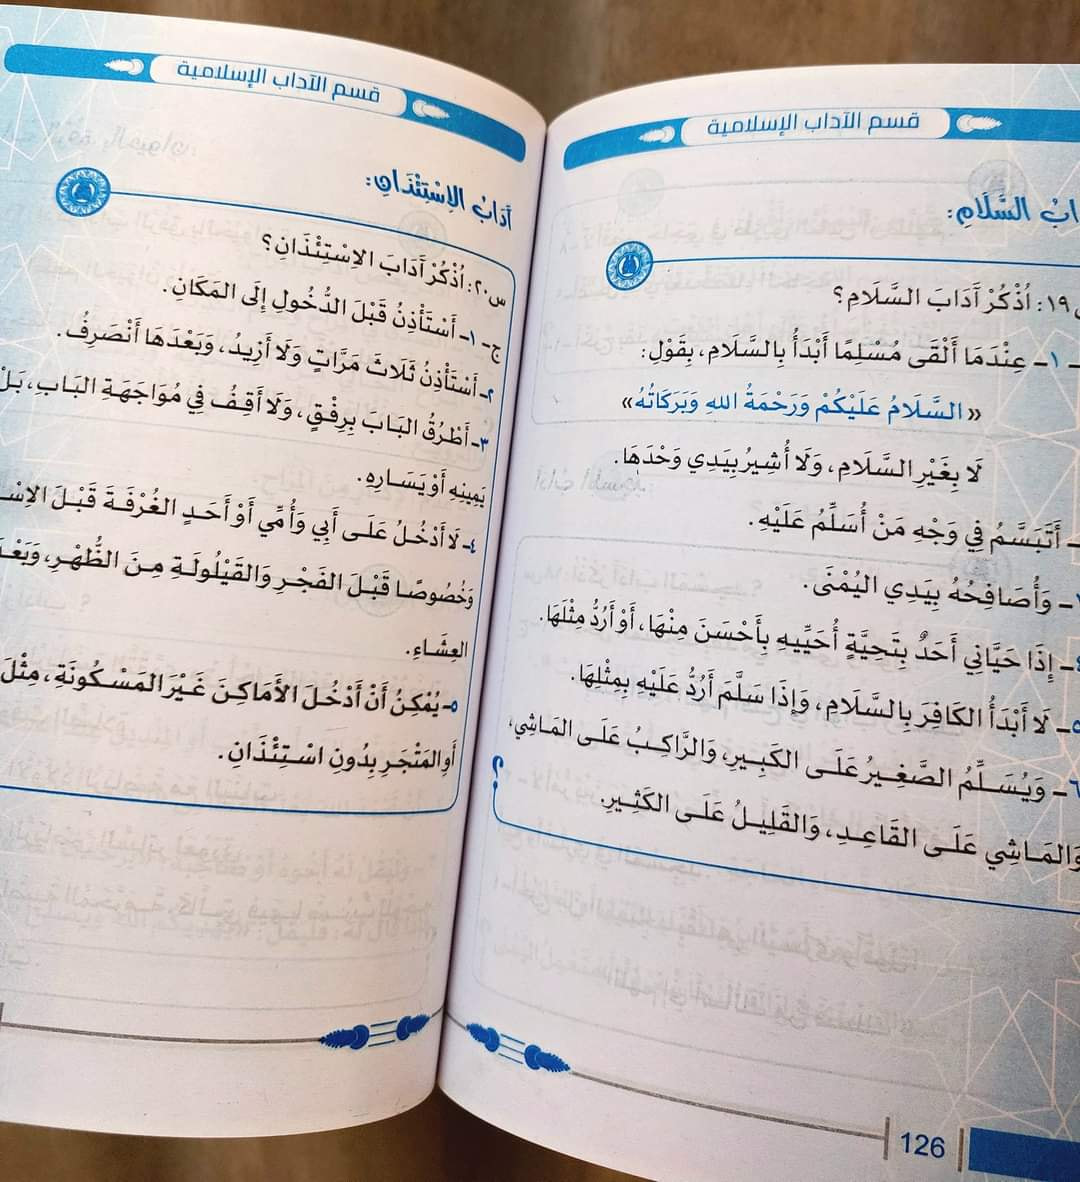 قسم الآداب الإسلامية
السَّلَامِ:
١٩: اُذْكُرْ آدَابَ السَّلَامِ؟
١- عِنْدَمَا أَلْقَى مُسْلِمًا أَبْدَأُ بِالسَّلَامِ، بِقَوْلِ:
« السَّلَامُ عَلَيْكُمْ وَرَحْمَةُ اللهِ وَبَرَكَاتُهُ»
لَا بِغَيْرِ السَّلَامِ، وَلَا أُشِيرُ بِيَدِي وَحْدَهَا.
- أَتَبَسَّمُ فِي وَجْهِ مَنْ أُسَلِّمُ عَلَيْهِ.
- وَأُصَافِحُهُ بِيَدِي اليُمْنَى.
- إِذَا حَيَّانِي أَحَدٌ بِتَحِيَّةٍ أُحَيِّيهِ بِأَحْسَنَ مِنْهَا، أَوْ أَرُدُّ مِثْلَهَا.
٥- لَا أَبْدَأُ الكَافِرَ بِالسَّلَامِ، وَإِذَا سَلَّمَ أَرُدُّ عَلَيْهِ بِمِثْلِهَا.
٦- وَيُسَلِّمُ الصَّغِيرُ عَلَى الكَبِيرِ، وَالرَّاكِبُ عَلَى المَاشِي،
وَالمَاشِي عَلَى القَاعِدِ، وَالقَلِيلُ عَلَى الكَثِيرِ.
126
قسم الآداب الإسلامية
آدَابُ الِاسْتِئْذَانِ:
س٢٠: اُذْكُرْ آدَابَ الِاسْتِئْذَانِ؟
ج- ١- أَسْتَأْذِنُ قَبْلَ الدُّخُولِ إِلَى المَكَانِ.
٢- أَسْتَأْذِنُ ثَلَاثَ مَرَّاتٍ وَلَا أَزِيدُ، وَبَعْدَهَا أَنْصَرِفُ.
٣- أَطْرُقُ البَابَ بِرِفْقٍ، وَلَا أَقِفُ فِي مُوَاجَهَةِ البَابِ، بَلْ
يَمِينِهِ أَوْ يَسَارِهِ.
٤- لَا أَدْخُلُ عَلَى أَبِي وَأُمِّي أَوْ أَحَدٍ الغُرْفَةَ قَبْلَ
وَخُصُوصًا قَبْلَ الفَجْرِ وَالقَيْلُولَةِ مِنَ الظُّهْرِ،
العِشَاءِ.
٥- يُمْكِنُ أَنْ أَدْخُلَ الأَمَاكِنَ غَيْرَ المَسْكُونَةِ، مِثْلَ
أَوِ المَتْجَرِ بِدُونِ اسْتِئْذَانِ.